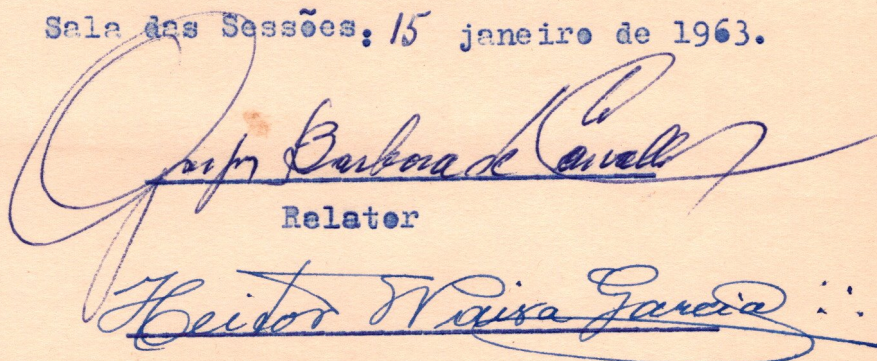 Sala das Sessões: 15 janeiro de 1963.
Barbosa de Carvalho
Relator
Heitor Garcia